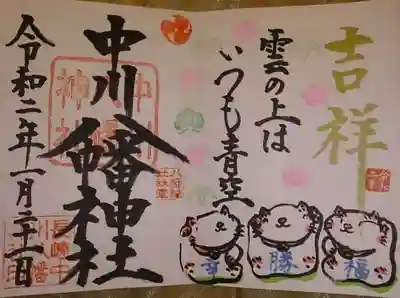 吉祥
雲の上は
いつも青空
福
勝
幸
中川八幡神社
令和二年一月二十一日